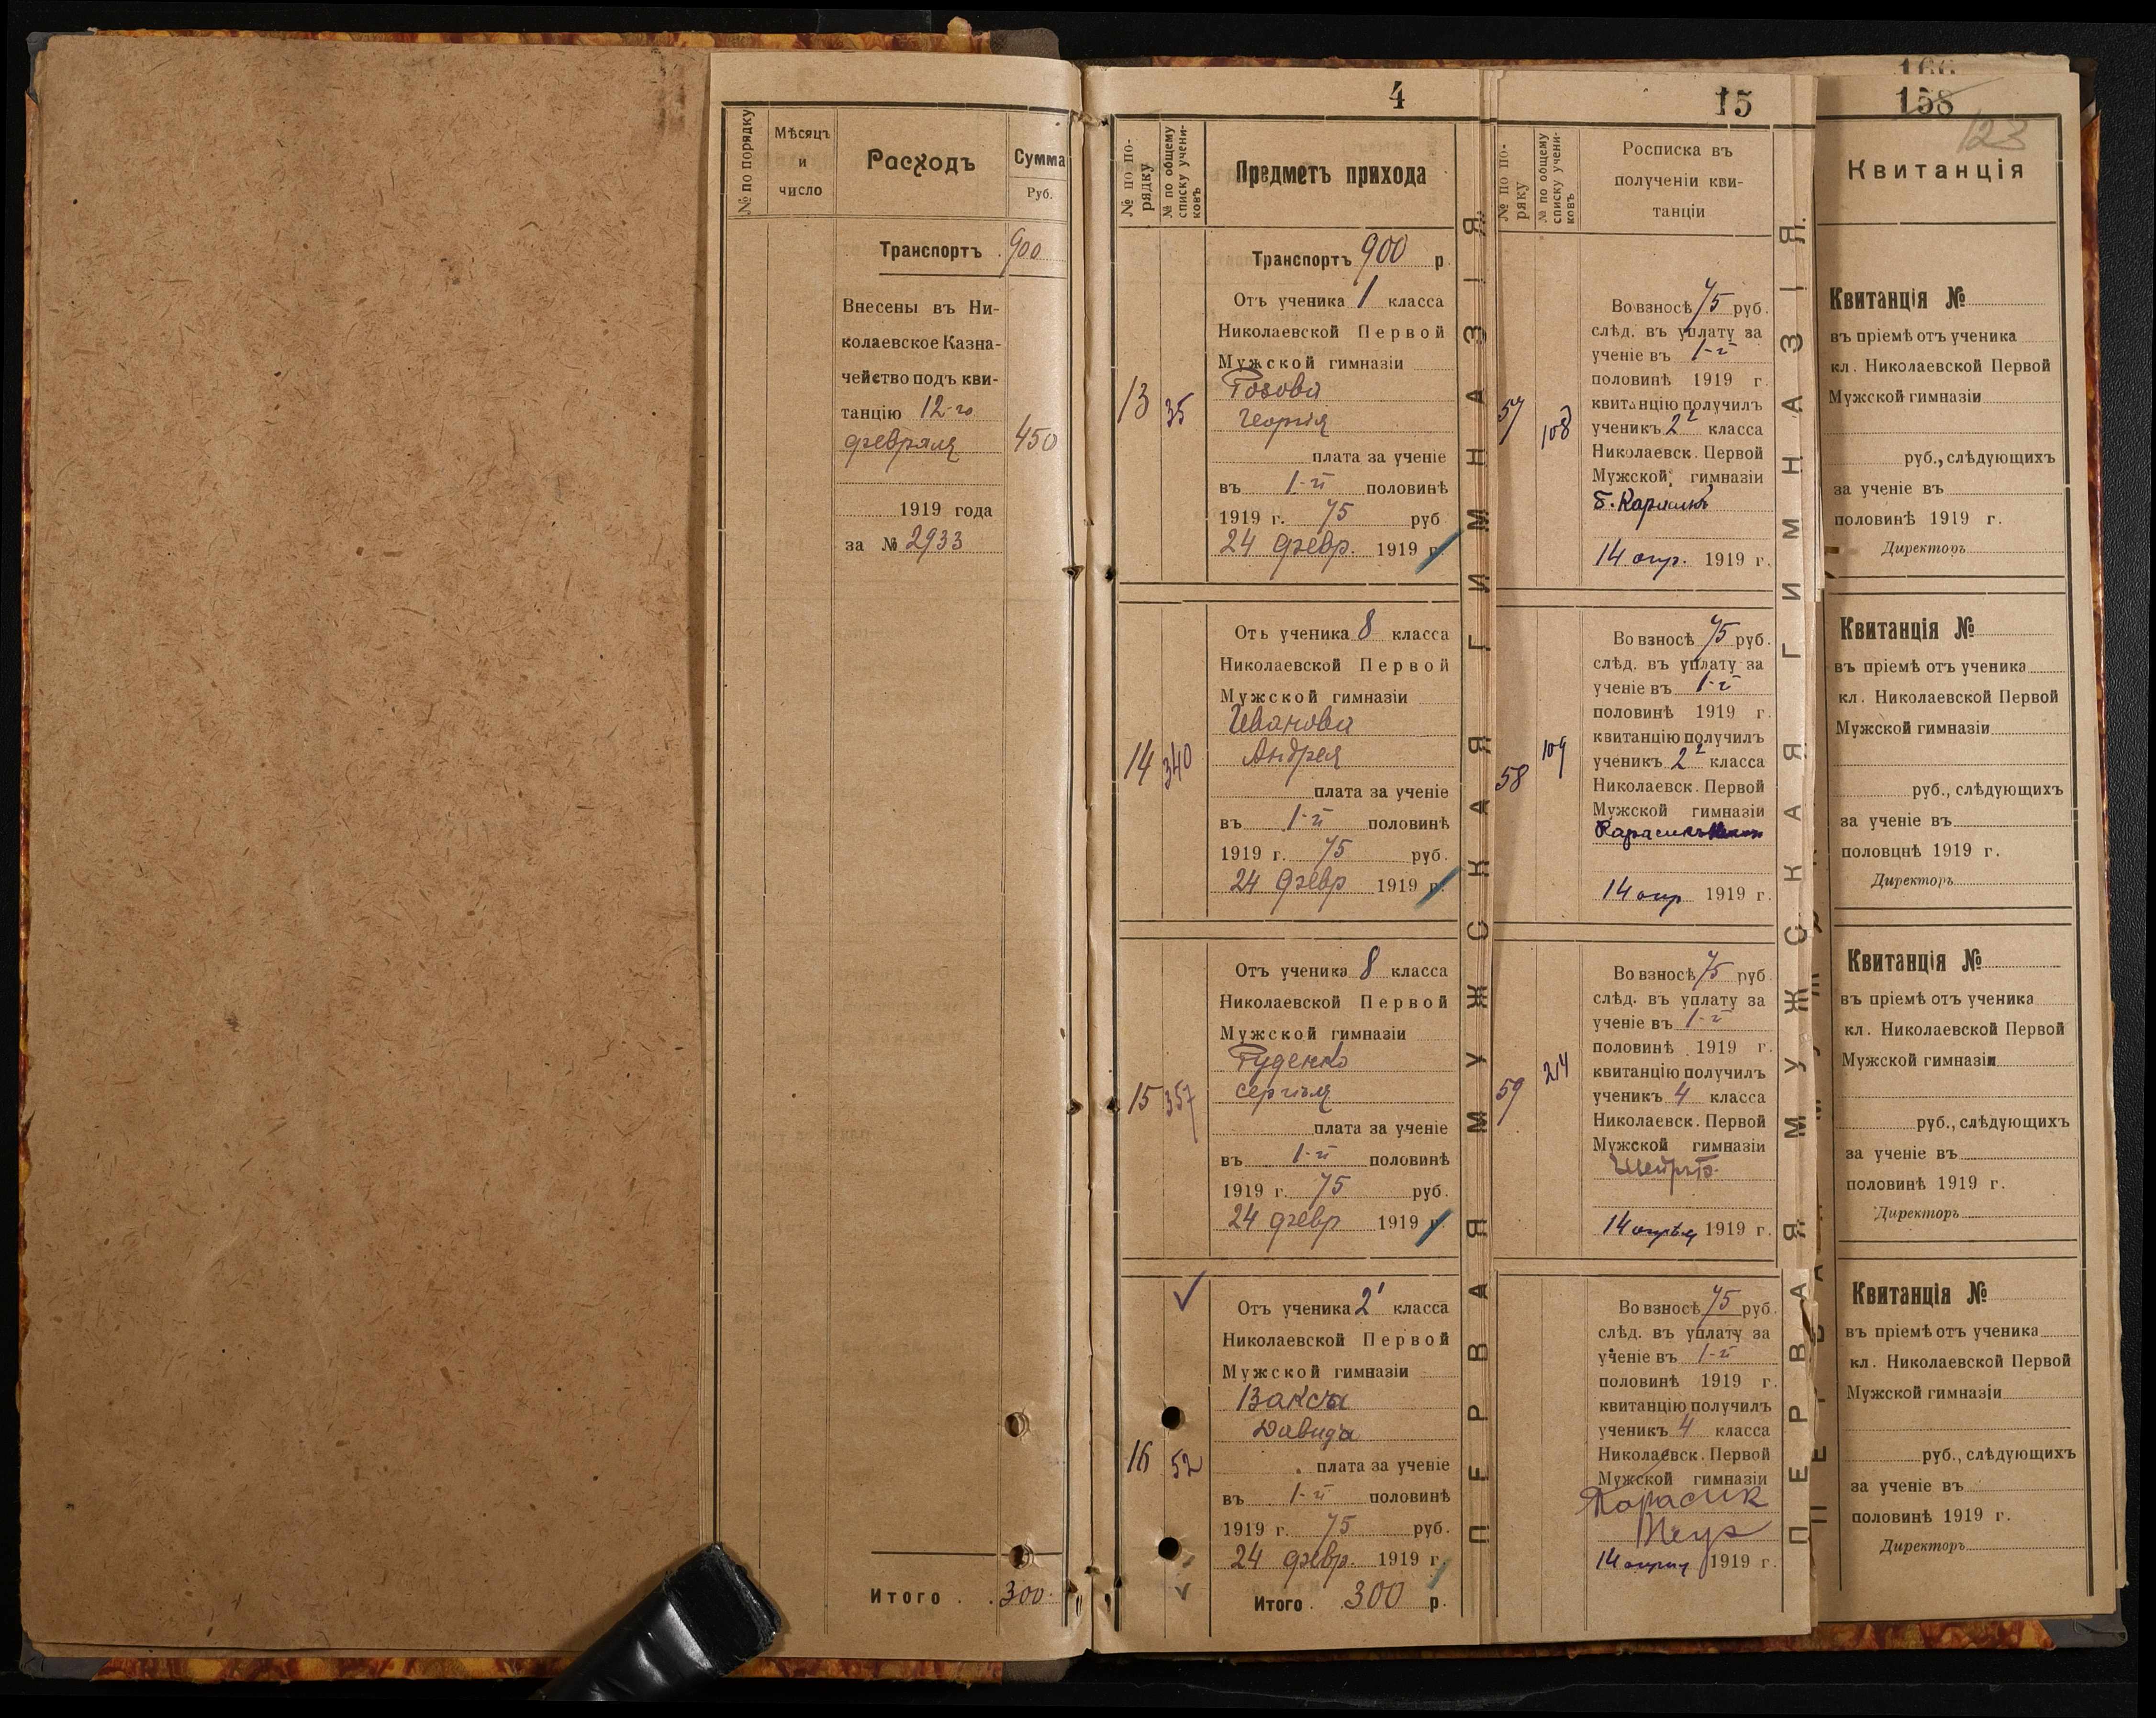 № по порядку
Мѣсяцъ
и
число
Расходъ
Сумма
Руб.
Транспортъ . 900
Внесены въ Ни-
колаевское Казна-
чейство подъ кви-
танцію 12-го
февраля
450
1919 года
за № 2933
Итого . . 300
4
№ по по-
рядку
№ по общему
списку учени-
ковъ
Предметъ прихода
Транспортъ 900 р
13
35
Отъ ученика 1 класса
Николаевской Первой
Мужской гимназіи
Розова
Георгія
плата за ученіе
въ 1-й половинѣ
1919 г. 75 руб
24 февр. 1919 г.
14
340
Отъ ученика 8 класса
Николаевской Первой
Мужской гимназіи
Иванова
Андрея
плата за ученіе
въ 1-й половинѣ
1919 г. 75 руб.
24 февр 1919 г.
15
357
Отъ ученика 8 класса
Николаевской Первой
Мужской гимназіи
Руденко
Сергѣя
плата за ученіе
въ 1-й половинѣ
1919 г. 75 руб.
24 февр 1919 г.
16
52
Отъ ученика 2' класса
Николаевской Первой
Мужской гимназіи
Ваксы
Давида
плата за ученіе
въ 1-й половинѣ
1919 г. 75 руб.
24 февр. 1919 г.
Итого . 300 р.
ПЕРВАЯ МУЖСКАЯ ГИМНАЗІЯ.
15
№ по по-
ряку
№ по общему
списку учени-
ковъ
Росписка въ
полученіи кви-
танціи
57
108
Во взносѣ 75 руб.
слѣд. въ уплату за
ученіе въ 1-й
половинѣ 1919 г.
квитанцію получилъ
ученикъ 2² класса
Николаевск. Первой
Мужской гимназіи
Б. Карасикъ
14 апр. 1919 г.
58
109
Во взносѣ 75 руб.
слѣд. въ уплату за
ученіе въ 1-й
половинѣ 1919 г.
квитанцію получилъ
ученикъ 2² класса
Николаевск. Первой
Мужской гимназіи
Карасикъ
14 апр 1919 г.
59
214
Во взносѣ 75 руб.
слѣд. въ уплату за
ученіе въ 1-й
половинѣ 1919 г.
квитанцію получилъ
ученикъ 4 класса
Николаевск. Первой
Мужской гимназіи
14 апрѣля 1919 г.
Во взносѣ 75 руб.
слѣд. въ уплату за
ученіе въ 1-й
половинѣ 1919 г.
квитанцію получилъ
ученикъ 4 класса
Николаевск. Первой
Мужской гимназіи
Карасик
14 апрѣля 1919 г.
ПЕРВАЯ МУЖСКАЯ ГИМНАЗІЯ.
166
158
123
Квитанція
Квитанція №
въ пріемѣ отъ ученика
кл. Николаевской Первой
Мужской гимназіи
руб., слѣдующихъ
за ученіе въ
половинѣ 1919 г.
Директоръ
Квитанція №
въ пріемѣ отъ ученика
кл. Николаевской Первой
Мужской гимназіи
руб., слѣдующихъ
за ученіе въ
половцнѣ 1919 г.
Директоръ
Квитанція №
въ пріемѣ отъ ученика
кл. Николаевской Первой
Мужской гимназіи
руб., слѣдующихъ
за ученіе въ
половинѣ 1919 г.
Директоръ
Квитанція №
въ пріемѣ отъ ученика
кл. Николаевской Первой
Мужской гимназіи
руб., слѣдующихъ
за ученіе въ
половинѣ 1919 г.
Директоръ